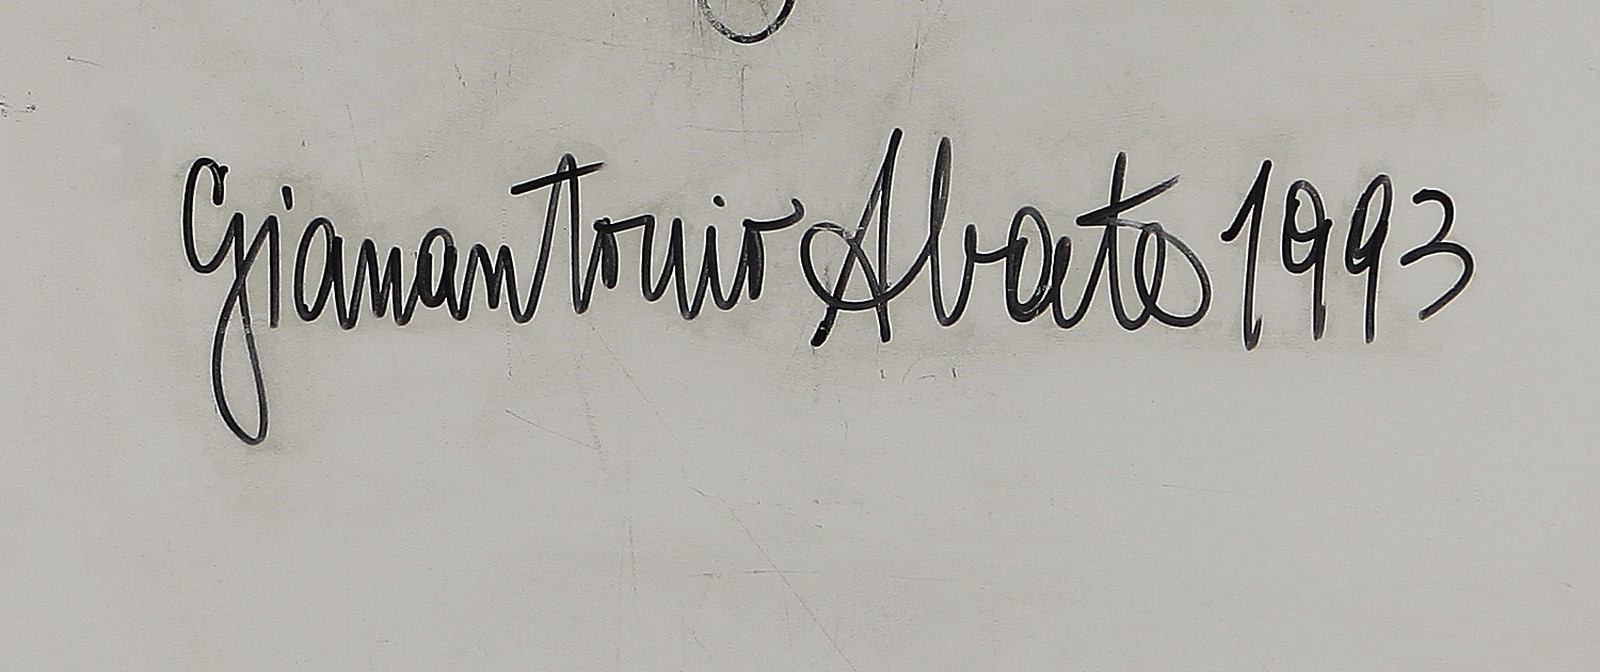 Gianantonio Abate 1993